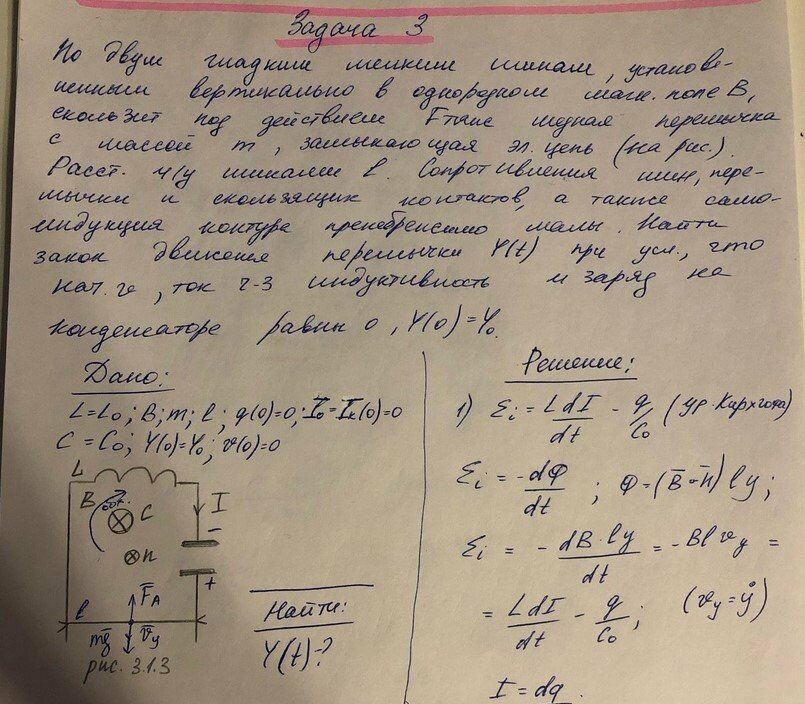 Задача 3
По двум гладким медким шинам, установе-
ленным вертикально в однородном магн. поле B,
скользит под действием Fтяж медная перемычка
с массой m, замыкающая эл. цепь (на рис.).
Расст. м/у шинами l. Сопротивления шин, пере-
мычки и скользящих контактов, а также само-
индукция контура пренебрежимо малы. Найти
закон движения перемычки Y(t) при усл., что
нач. v, ток ч-з индуктивность и заряд на
конденсаторе равны 0, Y(0)=Y₀.
Дано:
L=L₀; B; m; l; q(0)=0; I₀=I_L(0)=0
C=C₀; Y(0)=Y₀; v(0)=0
L
B
C
I
n
-
+
l
F̅_A
m̅g
v̅_y
рис. 3.1.3
Найти:
Y(t)-?
Решение:
1) Ɛi = LdI/dt - q/C₀ (ур. Кирхгофа)
Ɛi = -dФ/dt ; Ф=(B̅·n̅)ly;
Ɛi = -dB·ly/dt = -Blv_y =
= LdI/dt - q/C₀; (v_y=ẏ)
I = dq